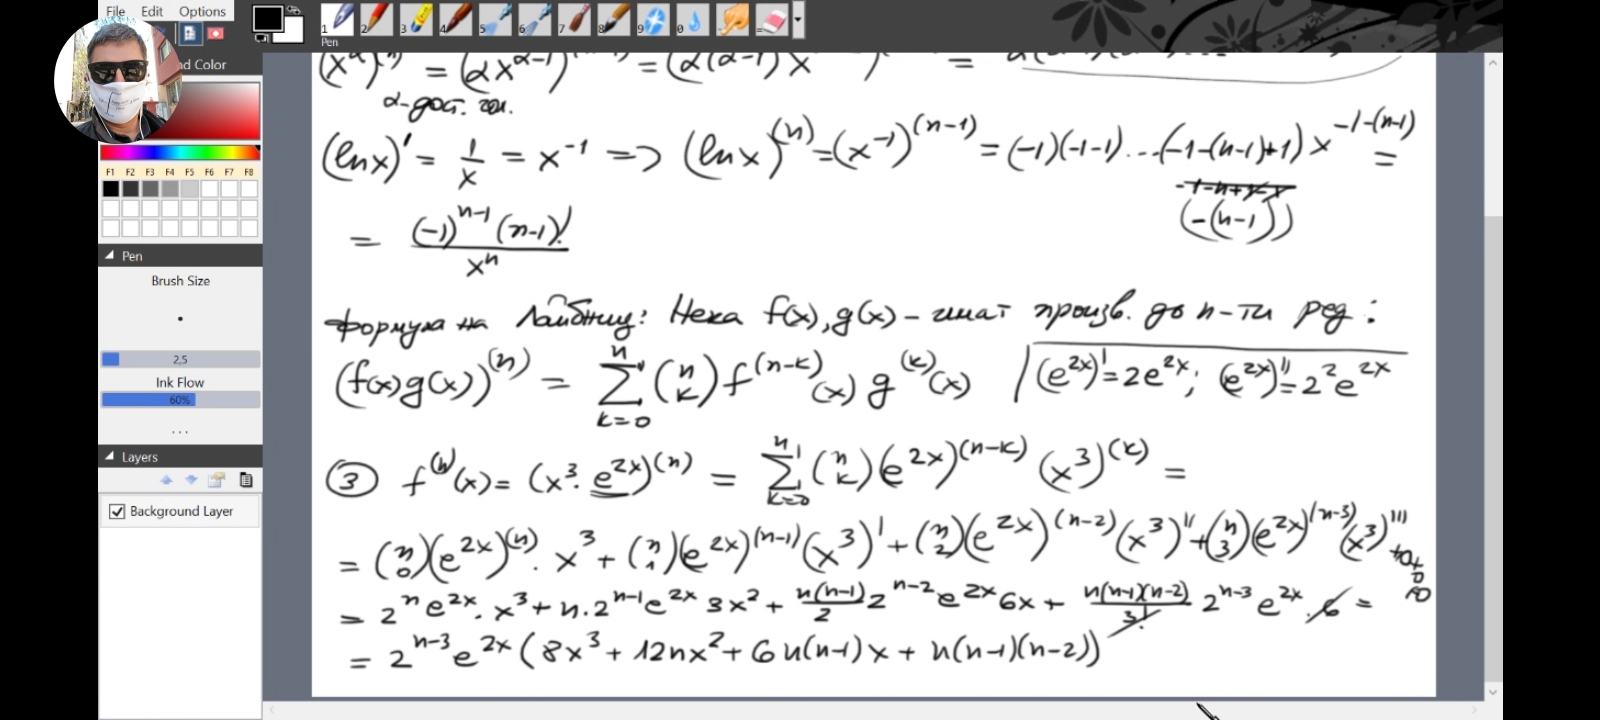 File Edit Options
nd Color
F1 F2 F3 F4 F5 F6 F7 F8
Pen
Brush Size
2,5
Ink Flow
60%
...
Layers
Background Layer
1 2 3 4 5 6 7 8 9 0 =
Pen
= (αx^{α-1}) = (α(α-1)x =
(ln x)' = 1/x = x^{-1} => (ln x)^{(n)} = (x^{-1})^{(n-1)} = (-1)(-1-1)...(-1-(n-1)+1) x^{-1-(n-1)} =
(-(n-1))
= (-1)^{n-1}(n-1)! / x^n
Формула на Лайбниц: Нека f(x), g(x) - имат произв. до n-ти ред:
(f(x)g(x))^{(n)} = ∑_{k=0}^{n} (n k) f^{(n-k)}(x) g^{(k)}(x) | (e^{2x})' = 2e^{2x}; (e^{2x})'' = 2^2 e^{2x}
③ f^{(n)}(x) = (x^3 . e^{2x})^{(n)} = ∑_{k=0}^{n} (n k)(e^{2x})^{(n-k)} (x^3)^{(k)} =
= (n 0)(e^{2x})^{(n)} . x^3 + (n 1)(e^{2x})^{(n-1)}(x^3)' + (n 2)(e^{2x})^{(n-2)}(x^3)'' + (n 3)(e^{2x})^{(n-3)}(x^3)'''
= 2^n e^{2x} . x^3 + n.2^{n-1} e^{2x} 3x^2 + n(n-1)/2 2^{n-2} e^{2x} 6x + n(n-1)(n-2)/3! 2^{n-3} e^{2x} . 6 =
= 2^{n-3} e^{2x} (8x^3 + 12nx^2 + 6n(n-1)x + n(n-1)(n-2))